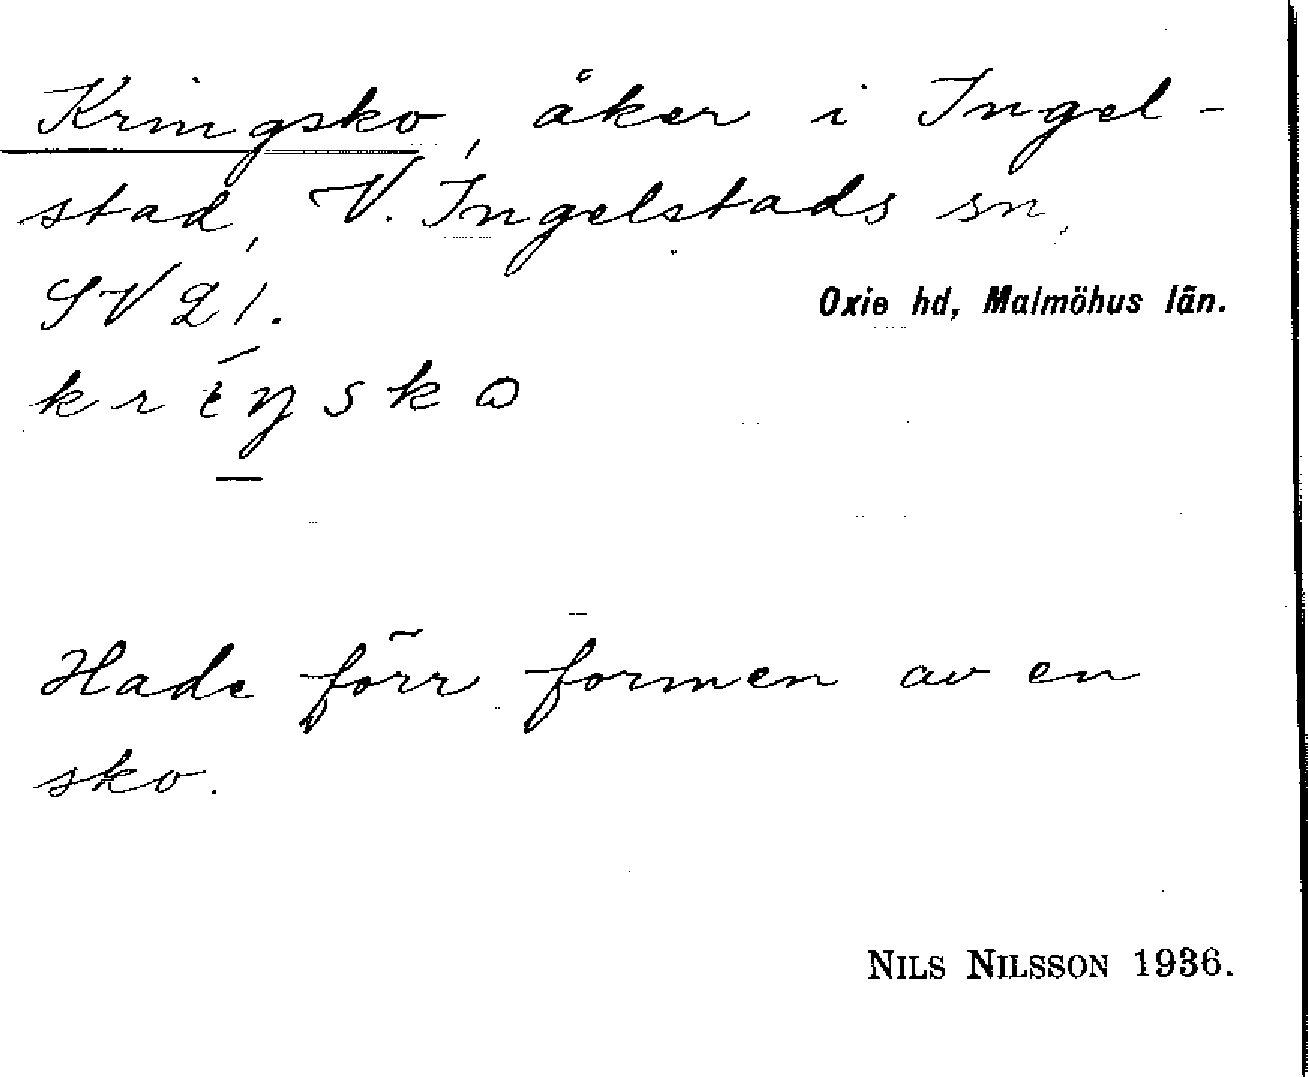 Kringsko, åker i Ingel-
stad, V. Ingelstads sn,
SV 21.
Oxie hd, Malmöhus län.
kríŋsko
Hade förr formen av en
sko.
NILS NILSSON 1936.